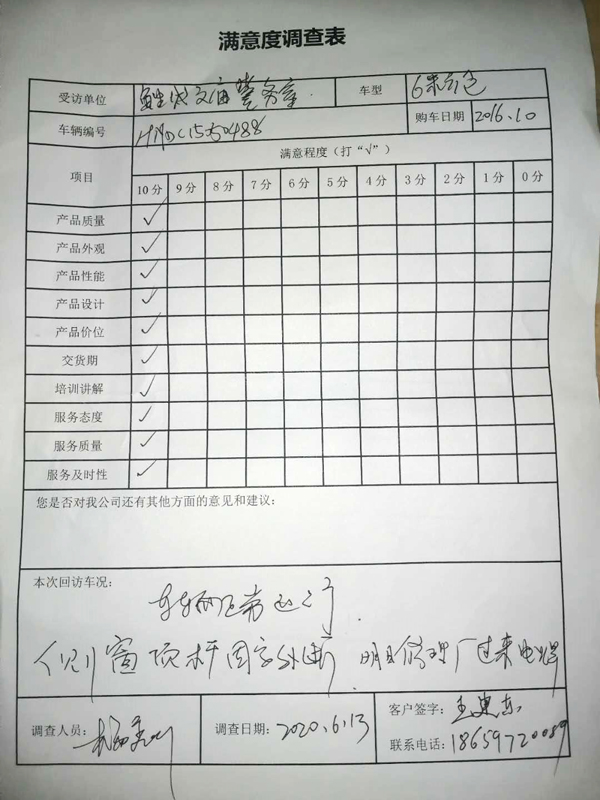 满意度调查表
受访单位 鲤城文庙警务室 车型 6米
车辆编号 购车日期 2016.10
项目 满意程度（打“√”）
10分 9分 8分 7分 6分 5分 4分 3分 2分 1分 0分
产品质量 ✓
产品外观 ✓
产品性能 ✓
产品设计 ✓
产品价位 ✓
交货期 ✓
培训讲解 ✓
服务态度 ✓
服务质量 ✓
服务及时性 ✓
您是否对我公司还有其他方面的意见和建议：
本次回访车况：
车辆正常运行
侧窗顶杆固定处断 明日修理厂过来电焊
调查人员： 调查日期：2020.6.13 客户签字：王建东
联系电话：18659720089